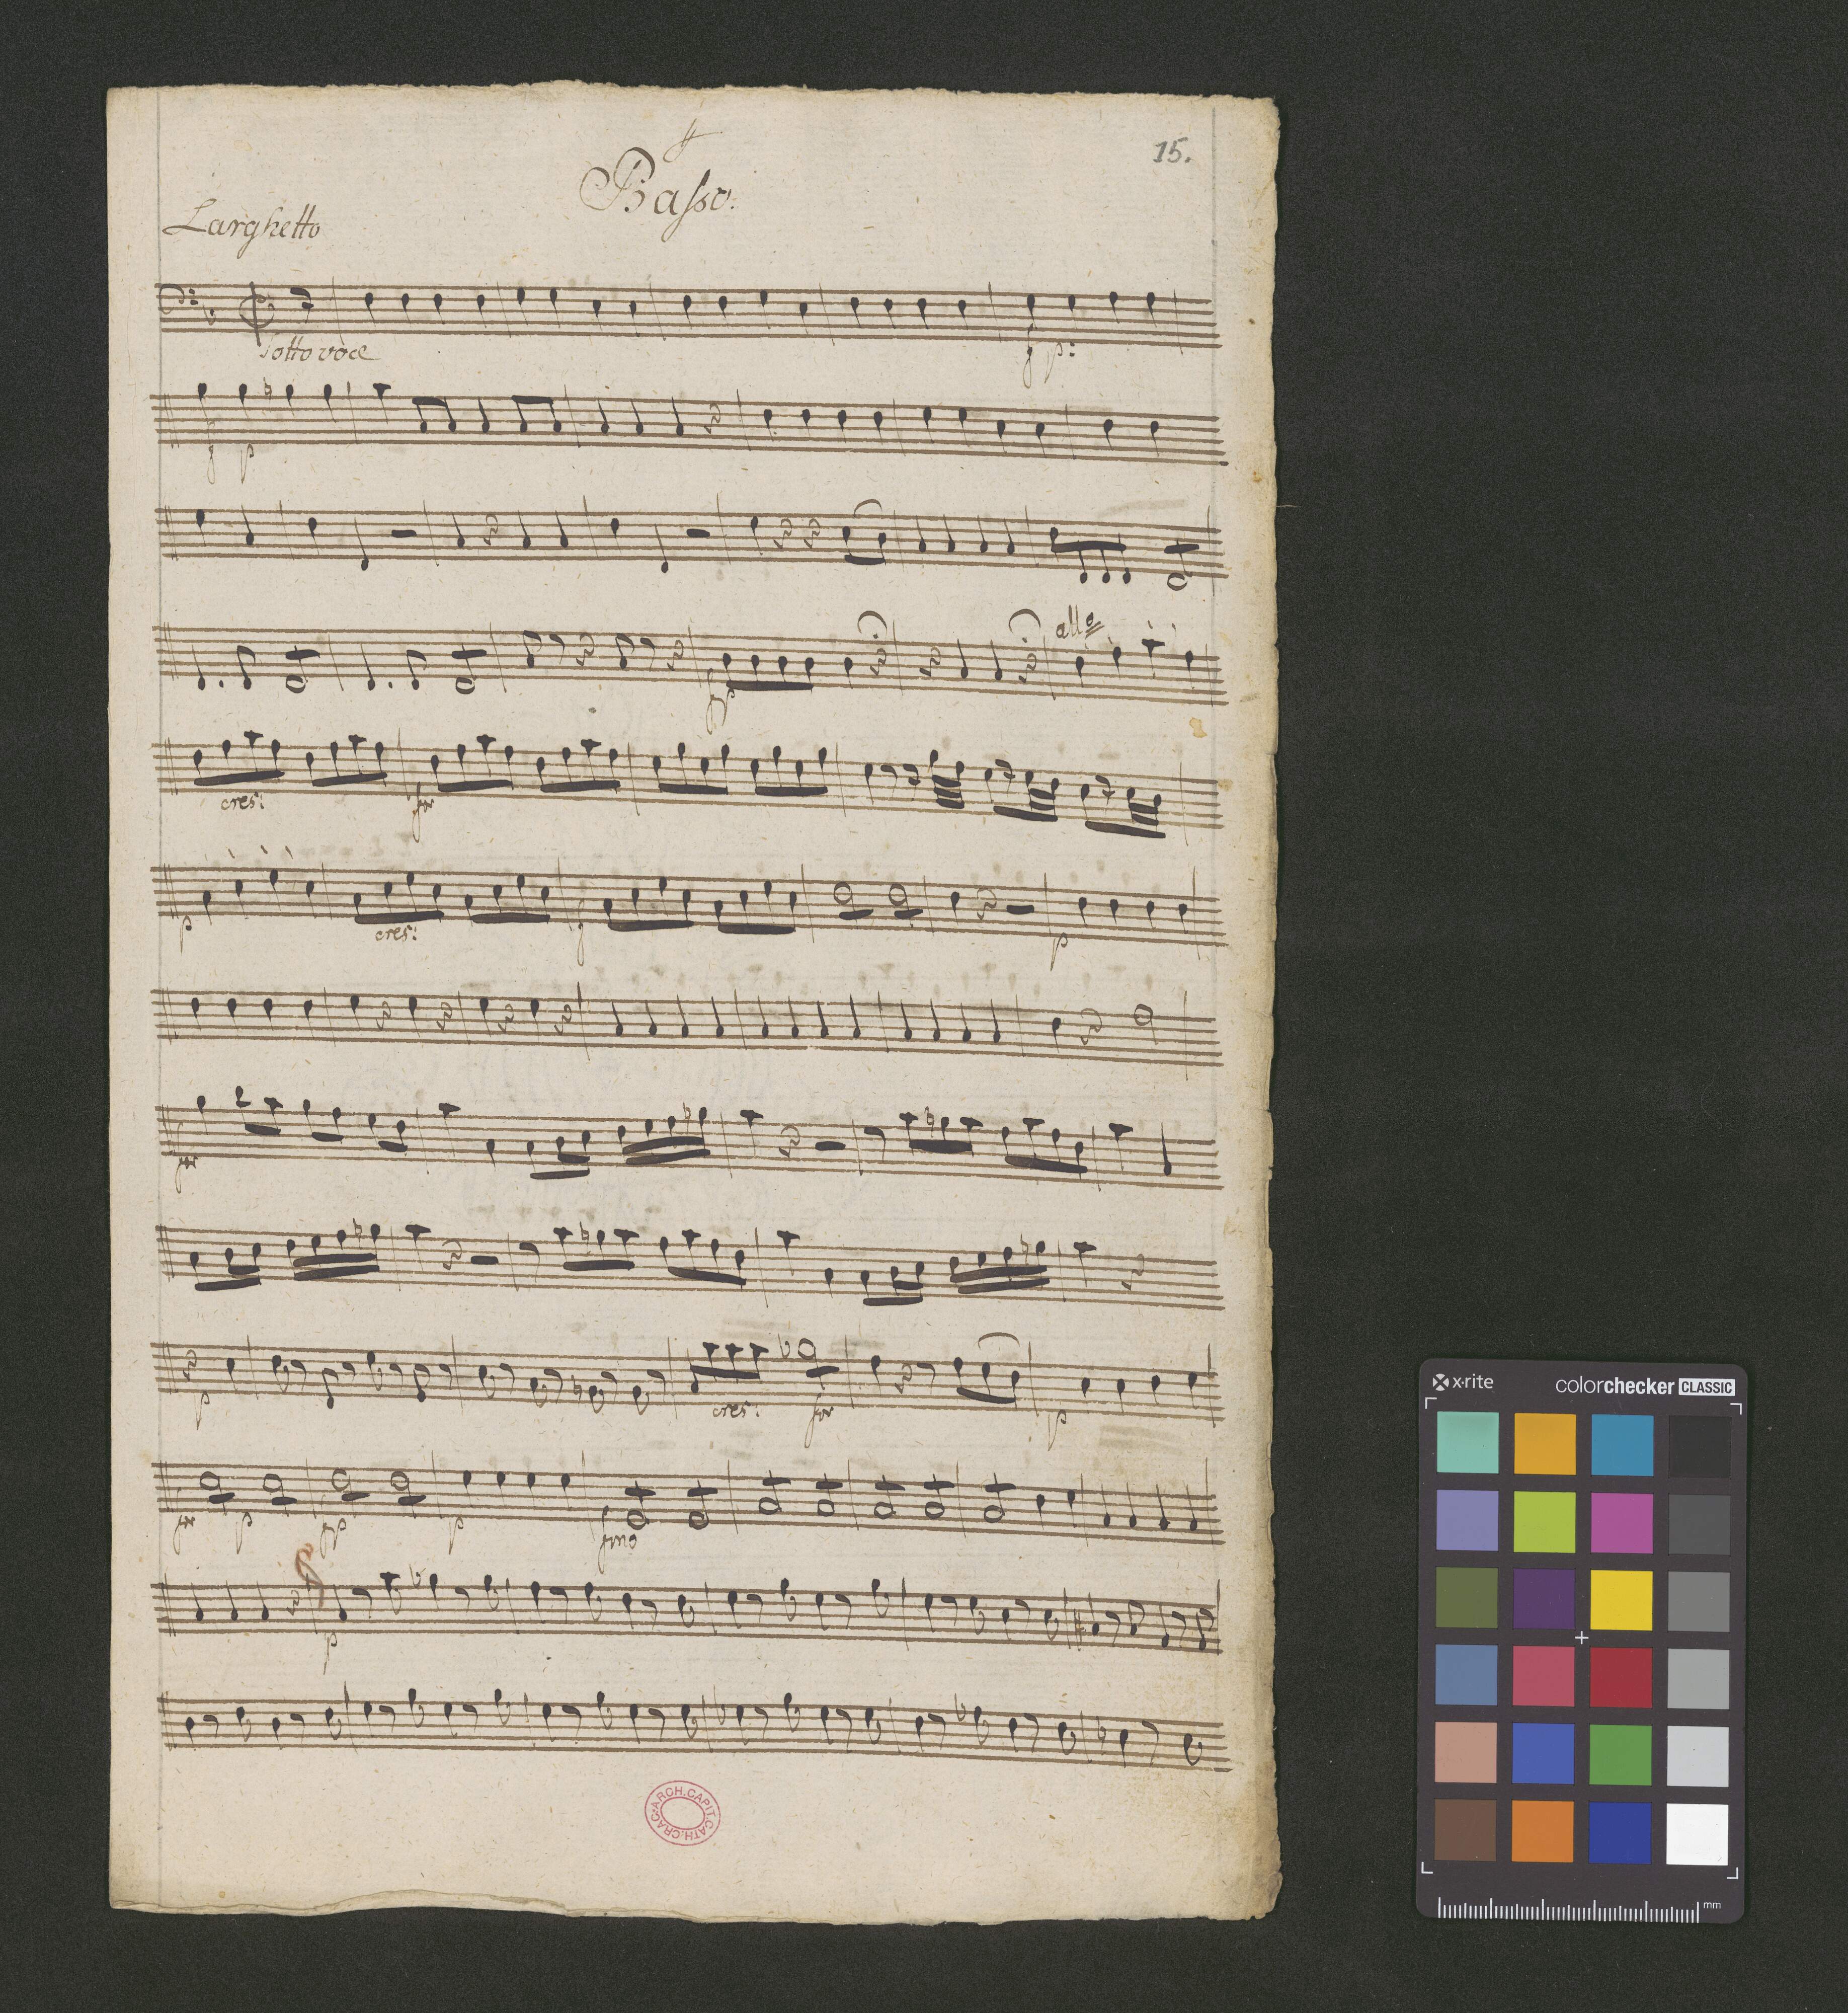 15.
Basso.
Larghetto
Sotto voce
f p:
f p
allo
fp
cres: for
p cres: f
p
for
p cres: for p
for p fp p fmo
p
ARCH.CAPIT.CATH.CRAC.
x·rite colorchecker CLASSIC
mm